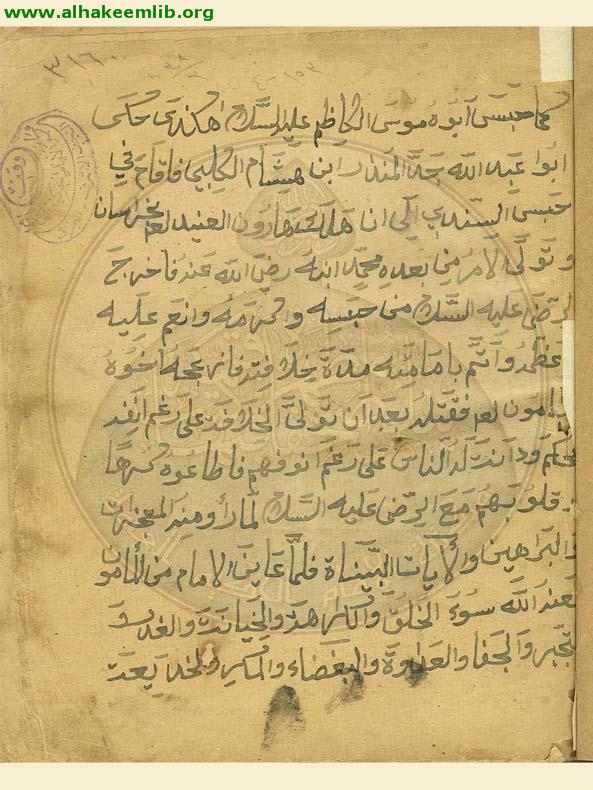 www.alhakeemlib.org
٣١٦٠
كما حبسى أبوه موسى الكاظم عليه السلام هكذى حكى
ابوا عبد الله جد المنذر ابن هشام الكلبي فاقام في
حبس السندي الى ان هلك هارون العنيد لعم بخراسان
وتولى الامر من بعده محمد ابنه رضي الله عنه فاخرج
لرضى عليه السلام من حبسه واكرمه وانعم عليه
عظمه وأتم بامامته مدة خلافته فانه عجه أخوه
مامون لعم فقتله بعد ان تولى الخلافة على رغم أنفه
حكم ودانت له الناس على رغم انوفهم فاطاعوه كرها
قلوبهم مع الرضى عليه السلام لما رأو منه المعجزات
والبراهين والأيات البيناة فلما عاين الامام من المامون
لعنه الله سوء الخلق والكارهة والخيانة والغدر و
تجبر والجفا والعداوة والبغضاء والمكر والخديعة